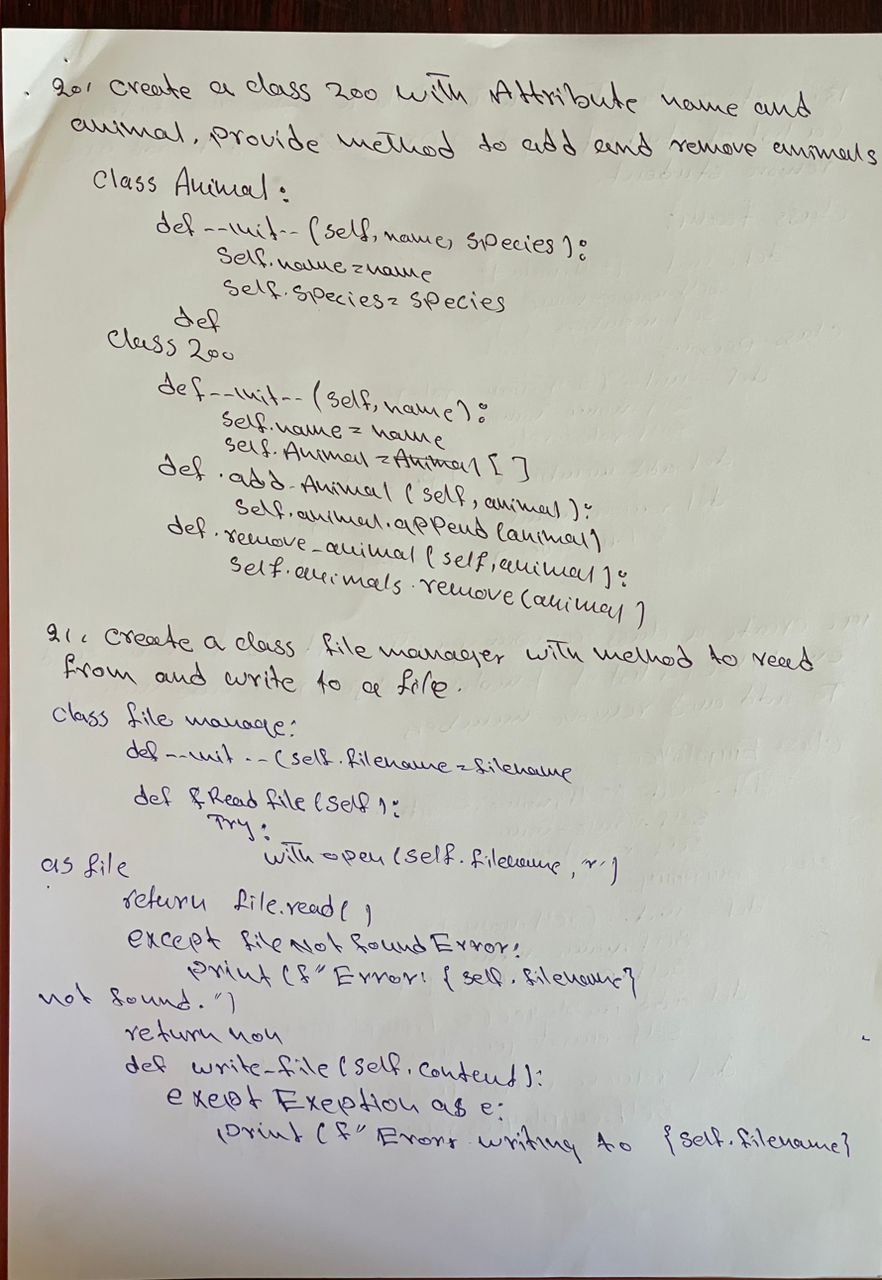 20. Create a class Zoo with Attribute name and
animal. Provide method to add and remove animals
Class Animal:
def --init-- (self, name, species):
Self.name = name
Self.species = species
def
Class Zoo
def --init-- (self, name):
Self.name = name
self.Animal = Animal [ ]
def .add-Animal (self, animal):
Self.animal.append (animal)
def .remove_animal (self, animal):
Self.animals.remove (animal)
21. Create a class file manager with method to read
from and write to a file.
class file manage:
def --init -- (self.filename = filename
def Read file (self):
Try:
with open (self.filename, 'r')
as file
return file.read( )
except file Not found Error:
print (f" Error: { self.filename}
not found.")
return non
def write-file (self.content):
exept Exeption as e:
print (f" Errors writing to {self.filename}